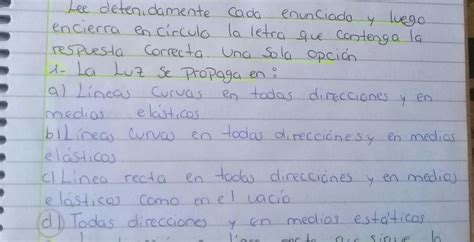 Lee detenidamente cada enunciado y luego
encierra en círculo la letra que contenga la
respuesta correcta una sola opción
1- La Luz se propaga en:
a) Líneas curvas en todas direcciones y en
medios elásticos
b) Líneas curvas en todas direcciónes y en medios
elásticos
c) Línea recta en todas direcciónes y en medios
elásticos como en el vacío
d) Todas direcciones y en medios estáticos